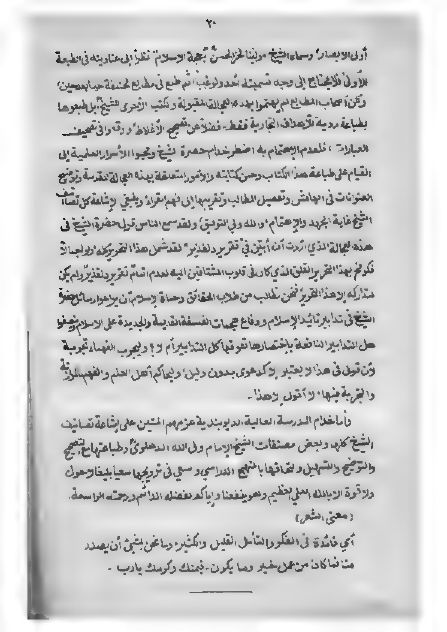 ٢٠
أولى الأبصار، وسماه الشيخ مولينا فخر الحسن بترجمة الإسلام نظراً إلى عناوينه فى الطبعة
الأولى لايحتاج إلى وجه تسميته أحد ولو غبياً ثم طبع فى مطابع مختلفة
ولكن أصحاب المطابع لم يهتموا بهذه العجالة وكتب الأخرى للشيخ بل طبعوها
بطباعة ردية للأهداف التجارية فقط. فضلاً عن تصحيح الأغلاط وقد وافى تصحيف
العبارات. فلعدم الإهتمام به اضطر خدام حضرة الشيخ ومحبوا الأسرار العلمية إلى
القيام على طباعة هذا الكتاب وحسن كتابته والأمور المتعلقة بهذه العجالة المقدسة وتوضيح
العنوانات فى الهامش وتفصيل المطالب وتقريبها إلى فهم القراء وينبغى لإشاعة كل تصانيف
الشيخ غاية الجهد والإهتمام، والله ولى التوفيق، وقد سمع الناس قول حضرة الشيخ فى
هذه العجالة الذى أردت أنه أبين فى تقرير دلفذير، فقد شمل هذا التقرير كله
لهذا التقرير القلق الذى كان فى قلوب المشتاقين إليه لعدم اتمام تقرير دلفذير ولم يكن
تداركه إلا هذا التقرير، فنحن نطلب من طلاب الحقائق وحماة الإسلام أن يدعوا رسائل حضرة
الشيخ فى تدابير تأئيد الإسلام ودفاع هجمات الفلسفة القديمة والجديدة على الاسلام
هل التدابير النافعة بإختصارها تفوقها كل التدابير أم لا؟ ويجرب الفهماء تجربة
لأن قولى فى هذا لا يعتبر إلا كدعوى بدون دليل، وليحاكم أهل العلم والفهم
والتجربة فيها، لا أقول إلا هذا.
وأما خدام المدرسة العالية الديوبندية عزمهم المتين على إشاعة تصانيف
الشيخ كلها وبعض مصنفات الشيخ الإمام ولى الله الدهلوى وطباعتها مع التصحيح
والتوضيح والتسهيل وإلحاقها بالمنهج الدراسى وسعى فى ترويجها سعيا بليغا ولا حول
ولا قوة إلا بالله العلى العظيم وهو ينفعنا وإياكم بفضله الدائم ورحمته الواسعة.
(معنى الشعر)
أى فائدة فى الفكر والتأمل القليل والكثير، وما نحن بشئى أن يصدر
منا فما كان من عمل خير وما يكون. فبمنك وكرمك يارب.